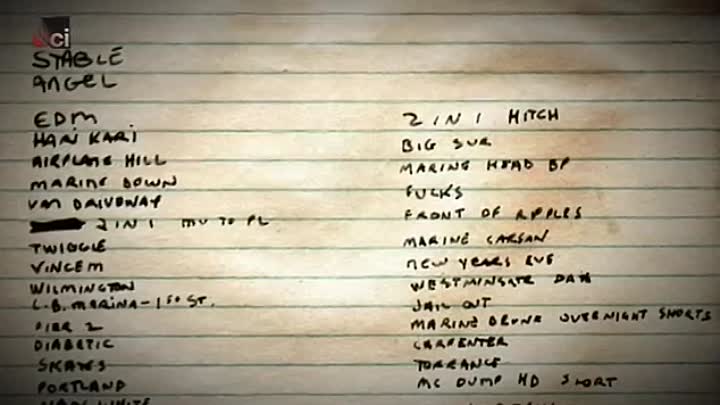 ci
STABLE
ANGEL
EDM
HARI KARI
AIRPLANE HILL
MARINE DOWN
VAN DRIVEWAY
2 IN 1 MV TO PL
TWIGGIE
VINCE M
WILMINGTON
L.B. MARINA -
PIER 2
DIABETIC
SKATES
PORTLAND
NAVY WHITE
2 IN 1 HITCH
BIG SUR
MARINE HEAD BP
FUCKS
FRONT OF RIPPLES
MARINE CARSON
NEW YEARS EVE
WESTMINSTER DATE
JAIL OUT
MARINE DRUNK OVERNIGHT SHORTS
CARPENTER
TORRANCE
MC DUMP HB SHORT